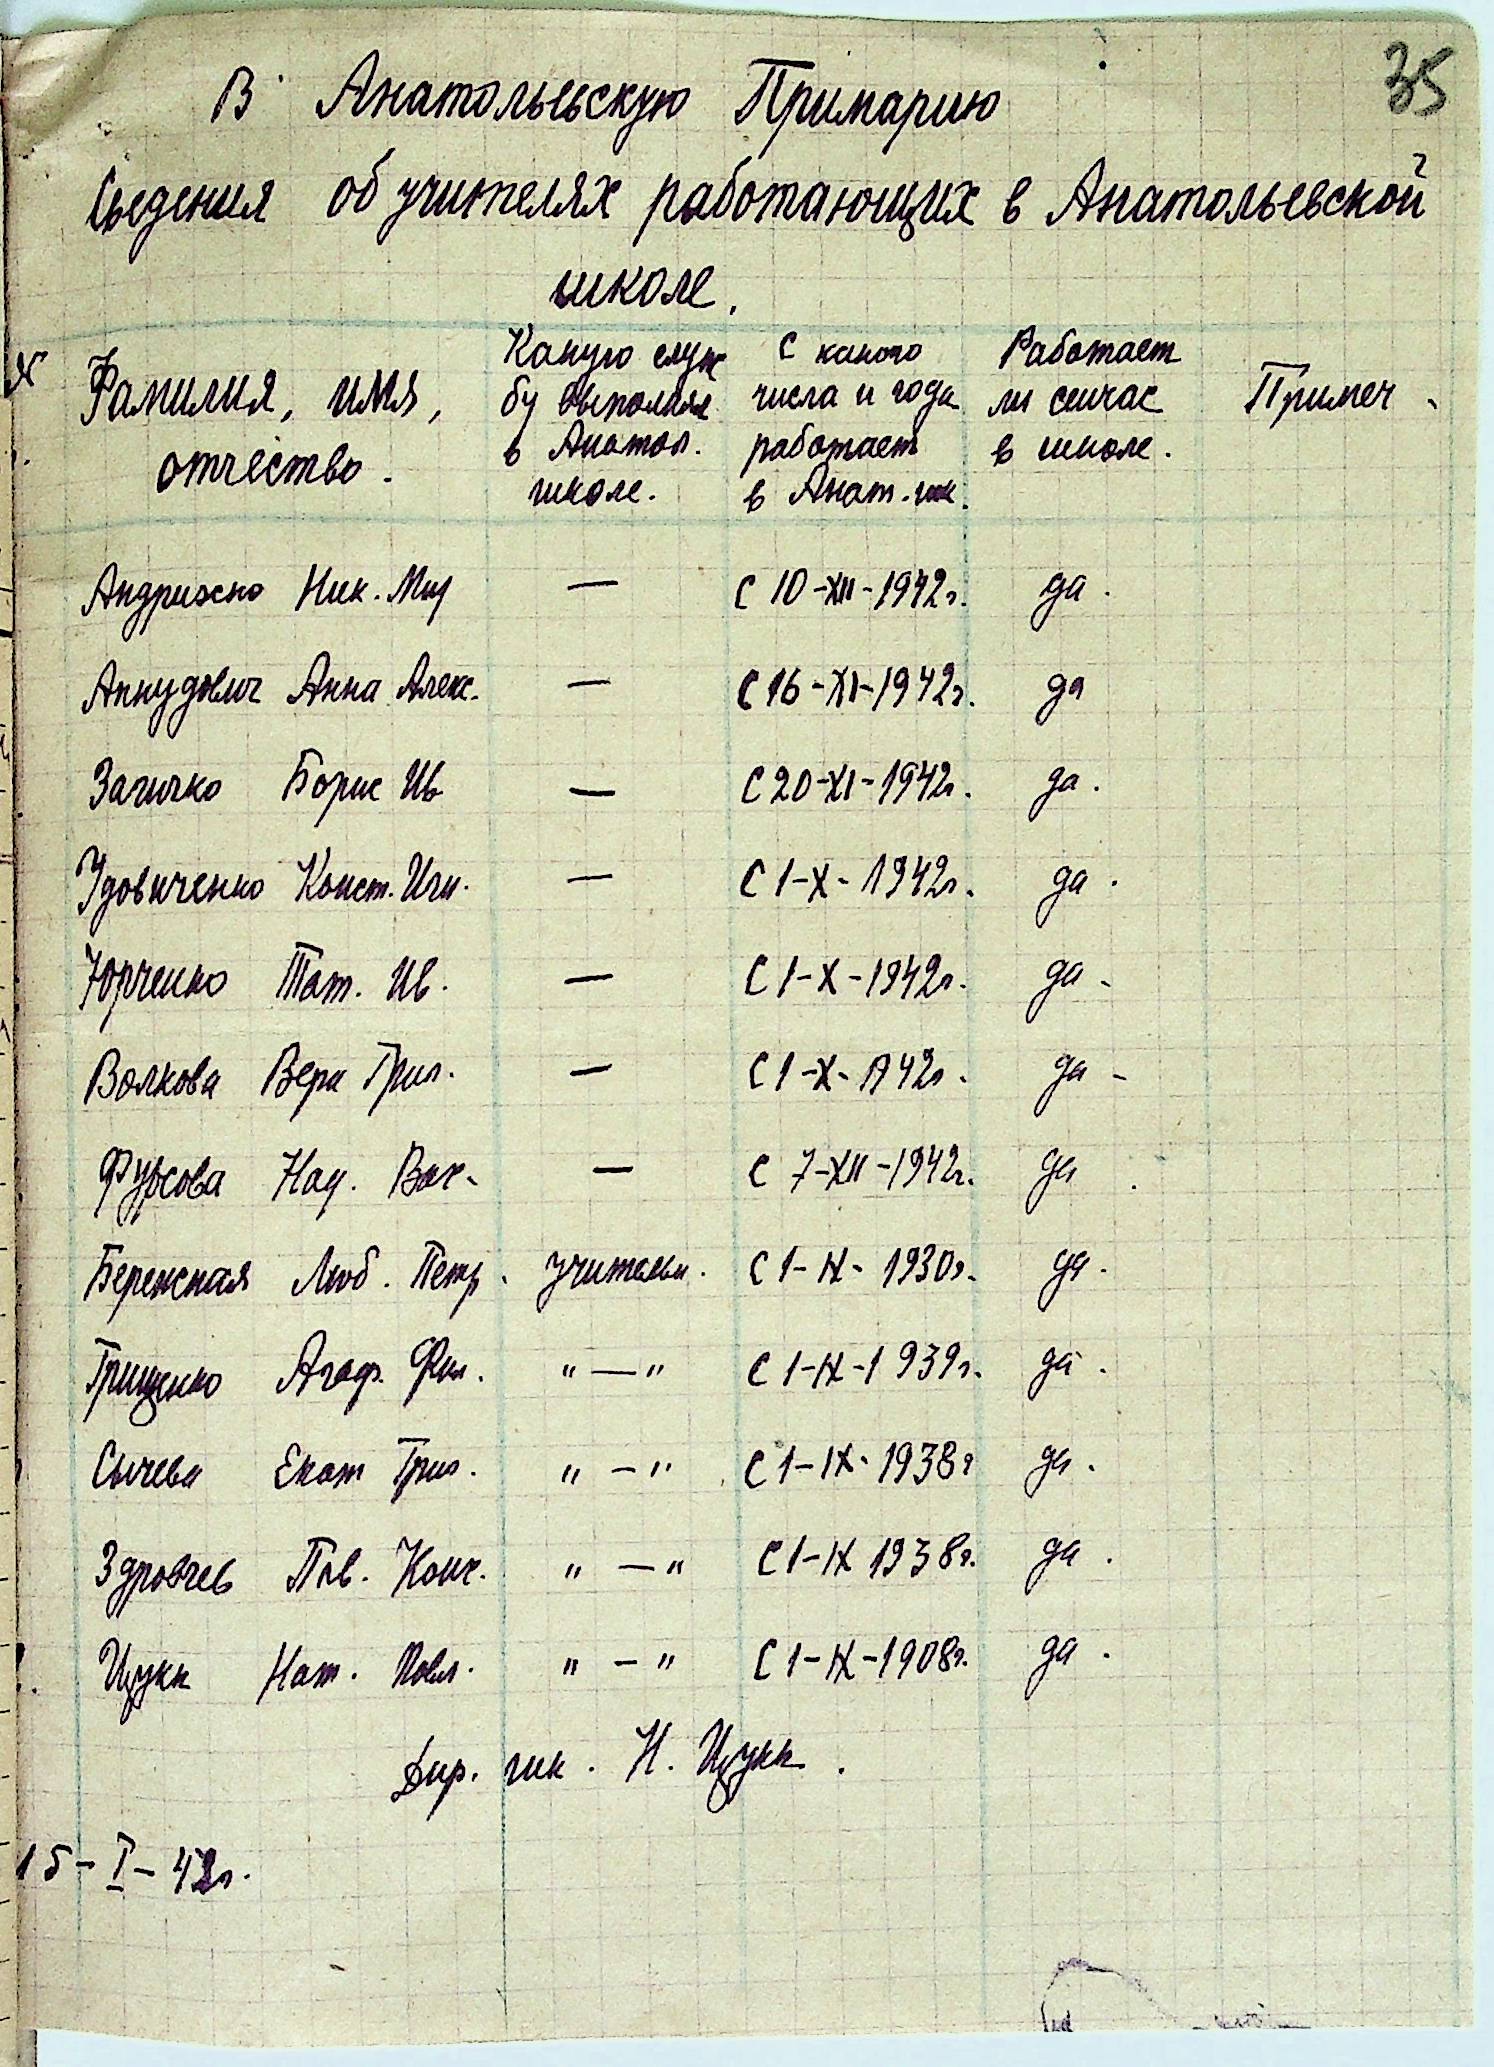 35
В Анатольевскую Примарию
Сведения об учителях работающих в Анатольевской
школе.
Фамилия, имя, отчество.
Какую служ бу выполнял в Анатол. школе.
С какого числа и года работает в Анат. шк.
Работает ли сейчас в школе.
Примеч.
Ник. — С 10-XII-1942г. да.
Анна Алекс. — С 16-XI-1942г. да
Загичко Борис Ив — С 20-XI-1942г. да.
Удовиченко Конст. Игн. — С 1-X-1942г. да.
Юрченко Тат. Ив. — С 1-X-1942г. да.
Волкова Вера Григ. — С 1-X-1942г. да
Фурсова Над. Вас. — С 7-XII-1942г. да
Бережная Люб. Петр. учительн. С 1-IX-1930г. да.
Грищенко Агаф. Фил. "—" С 1-IX-1939г. да.
Сычева Екат Григ. "—" С 1-IX-1938г да.
Пав. "—" С 1-IX 1938г. да.
Цукк Нат. Павл. "—" С 1-IX-1908г. да.
Дир. шк. Н. Цукк.
15-I-42г.